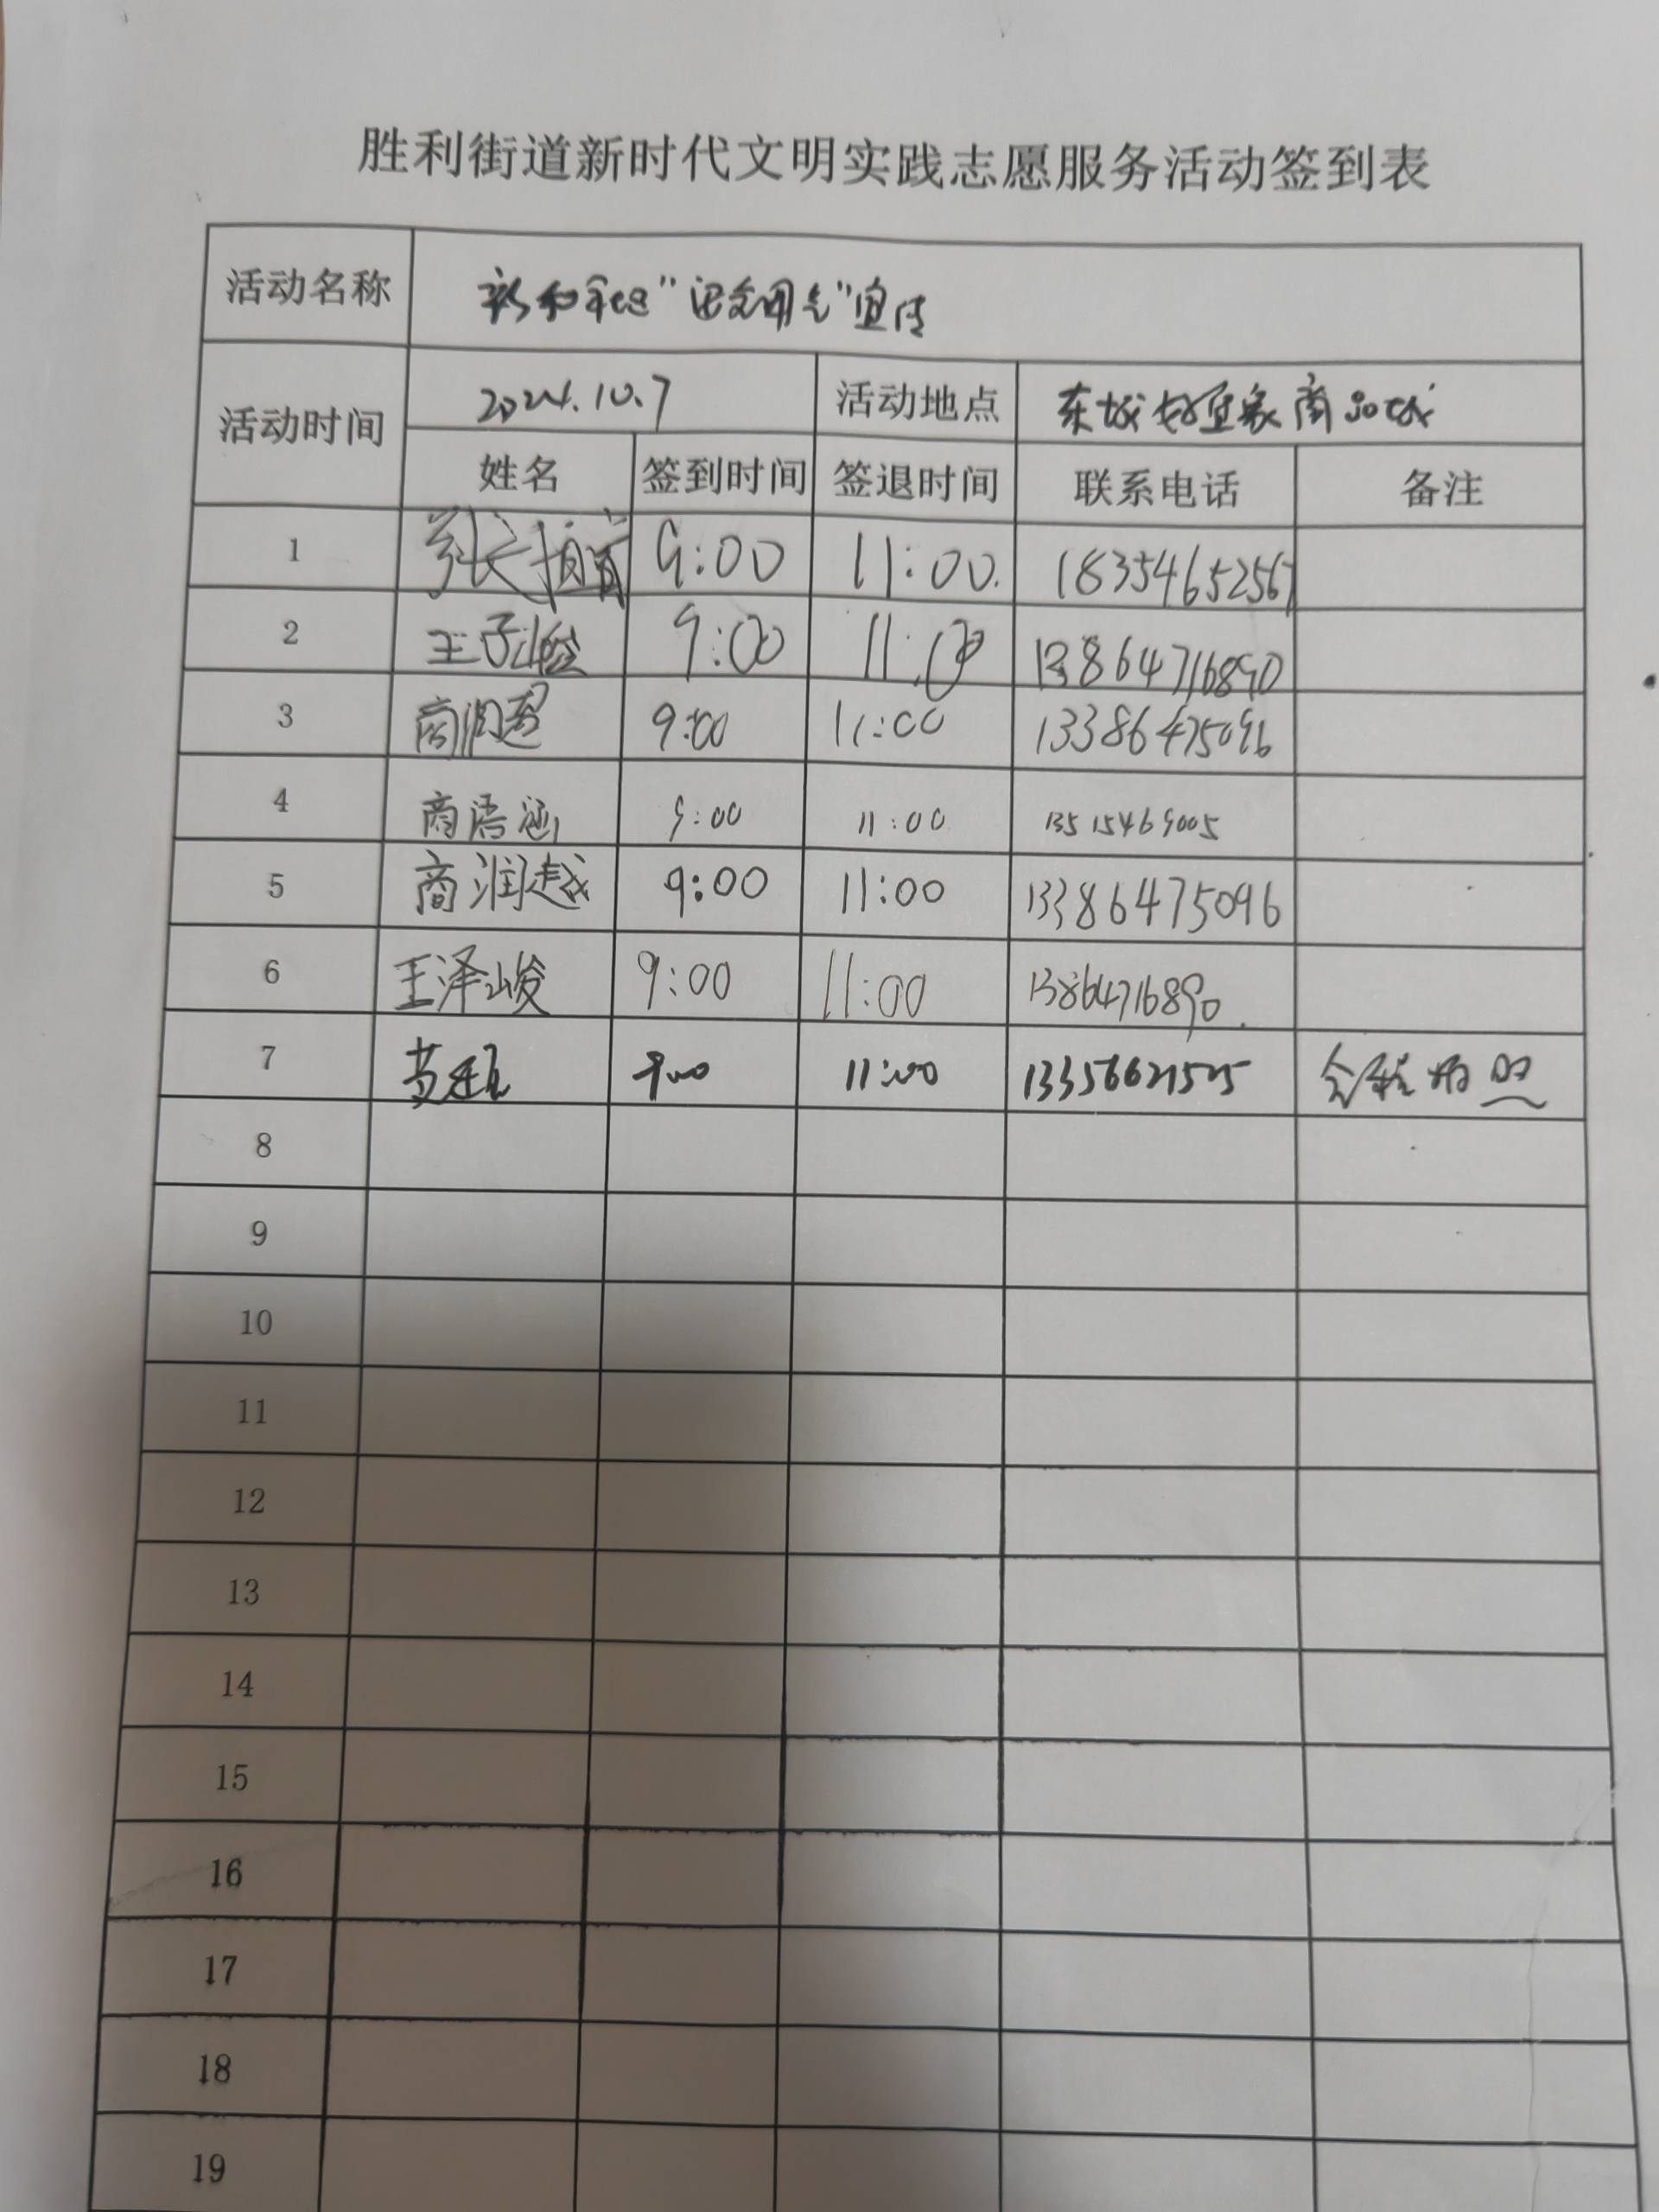 胜利街道新时代文明实践志愿服务活动签到表
活动名称 "安全用气"宣传
活动时间 2024.10.7 活动地点 东城好宜家商品城
姓名 签到时间 签退时间 联系电话 备注
1 9:00 11:00. 18354652567
2 王子峻 9:00 11:00 13864716890
3 商润 9:00 11:00 13386475096
4 商语涵 9:00 11:00 13515469005
5 商润越 9:00 11:00 13386475096
6 王泽峻 9:00 11:00 13864716890.
7 9:00 11:00
8
9
10
11
12
13
14
15
16
17
18
19